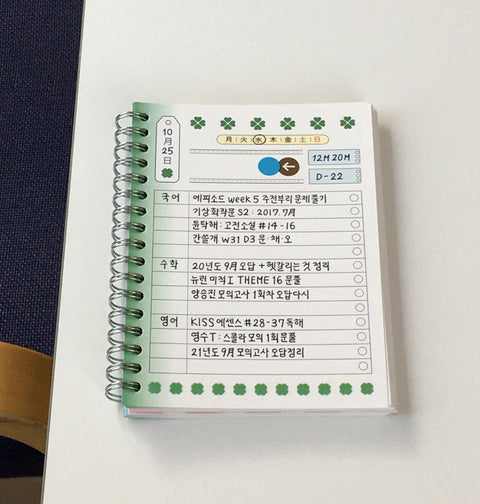 10
月
25
日
月 火 水 木 金 土 日
12M 20M
D-22
국어 에피소드 week 5 주전부리 문제풀기
기상화작문 S2 : 2017. 7月
윤탁해 : 고전소설 #14-16
간쓸개 W31 D3 문·채·오
수학 20년도 9月 오답 + 헷갈리는 것 정리
뉴런 미적 I THEME 16 문풀
양승진 모의고사 1회차 오답다시
영어 KISS 에센스 #28-37 독해
영수T : 스콜라 모의 1회 문풀
21년도 9月 모의고사 오답정리